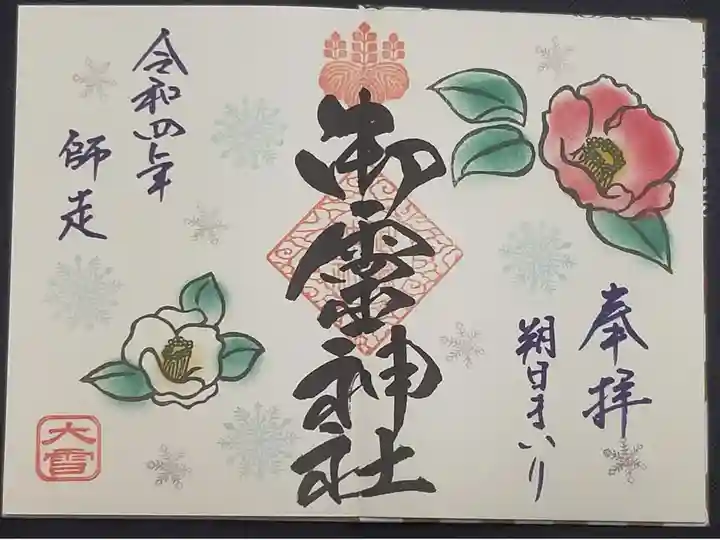 奉拝
朔日まいり
御霊神社
令和四年
師走
大雪